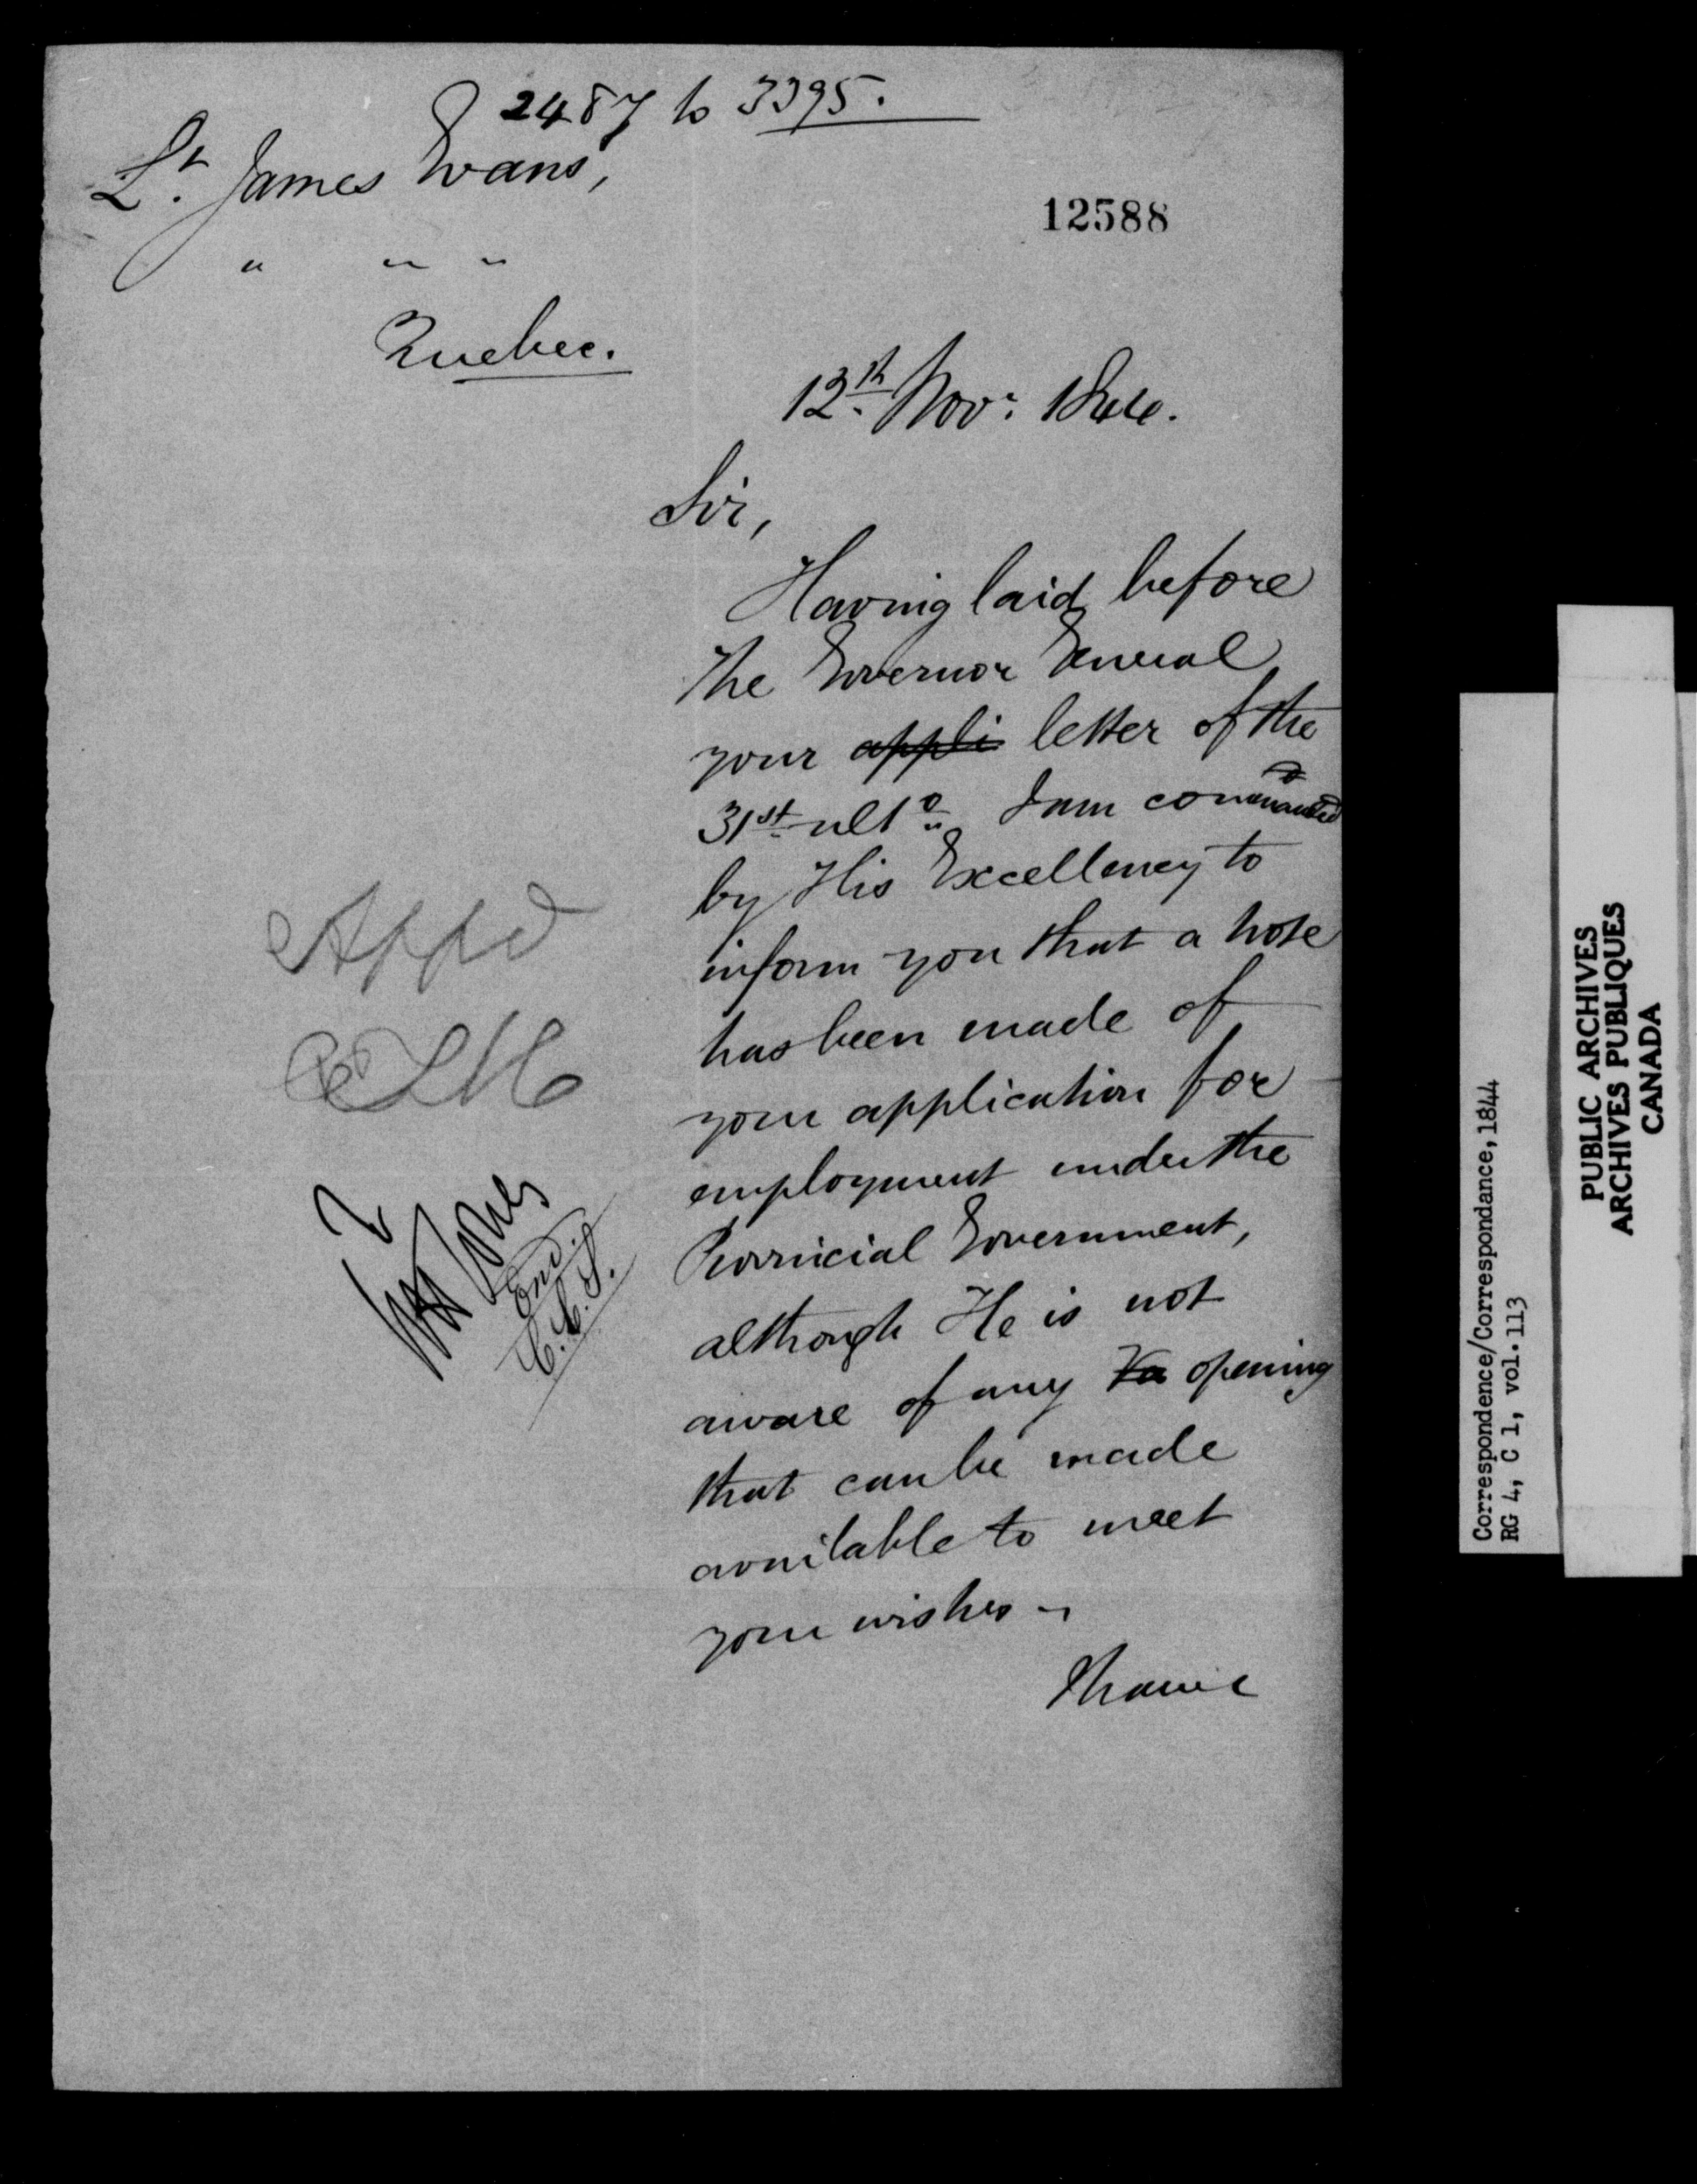 2487 to 3395.
Lt. James Evans,
" " "
Quebec.
12588
12th Novr. 1844.
Sir,
Having laid before
the Governor General
your appli letter of the
31st ulto. I am commanded
by His Excellency to
inform you that a note
has been made of
your application for
employment under the
Provincial Government,
although He is not
aware of any Va opening
that can be made
available to meet
your wishes
I have
Appd
End.
C.C.S.
Correspondence/Correspondance, 1844
RG 4, C 1, vol. 113
PUBLIC ARCHIVES
ARCHIVES PUBLIQUES
CANADA